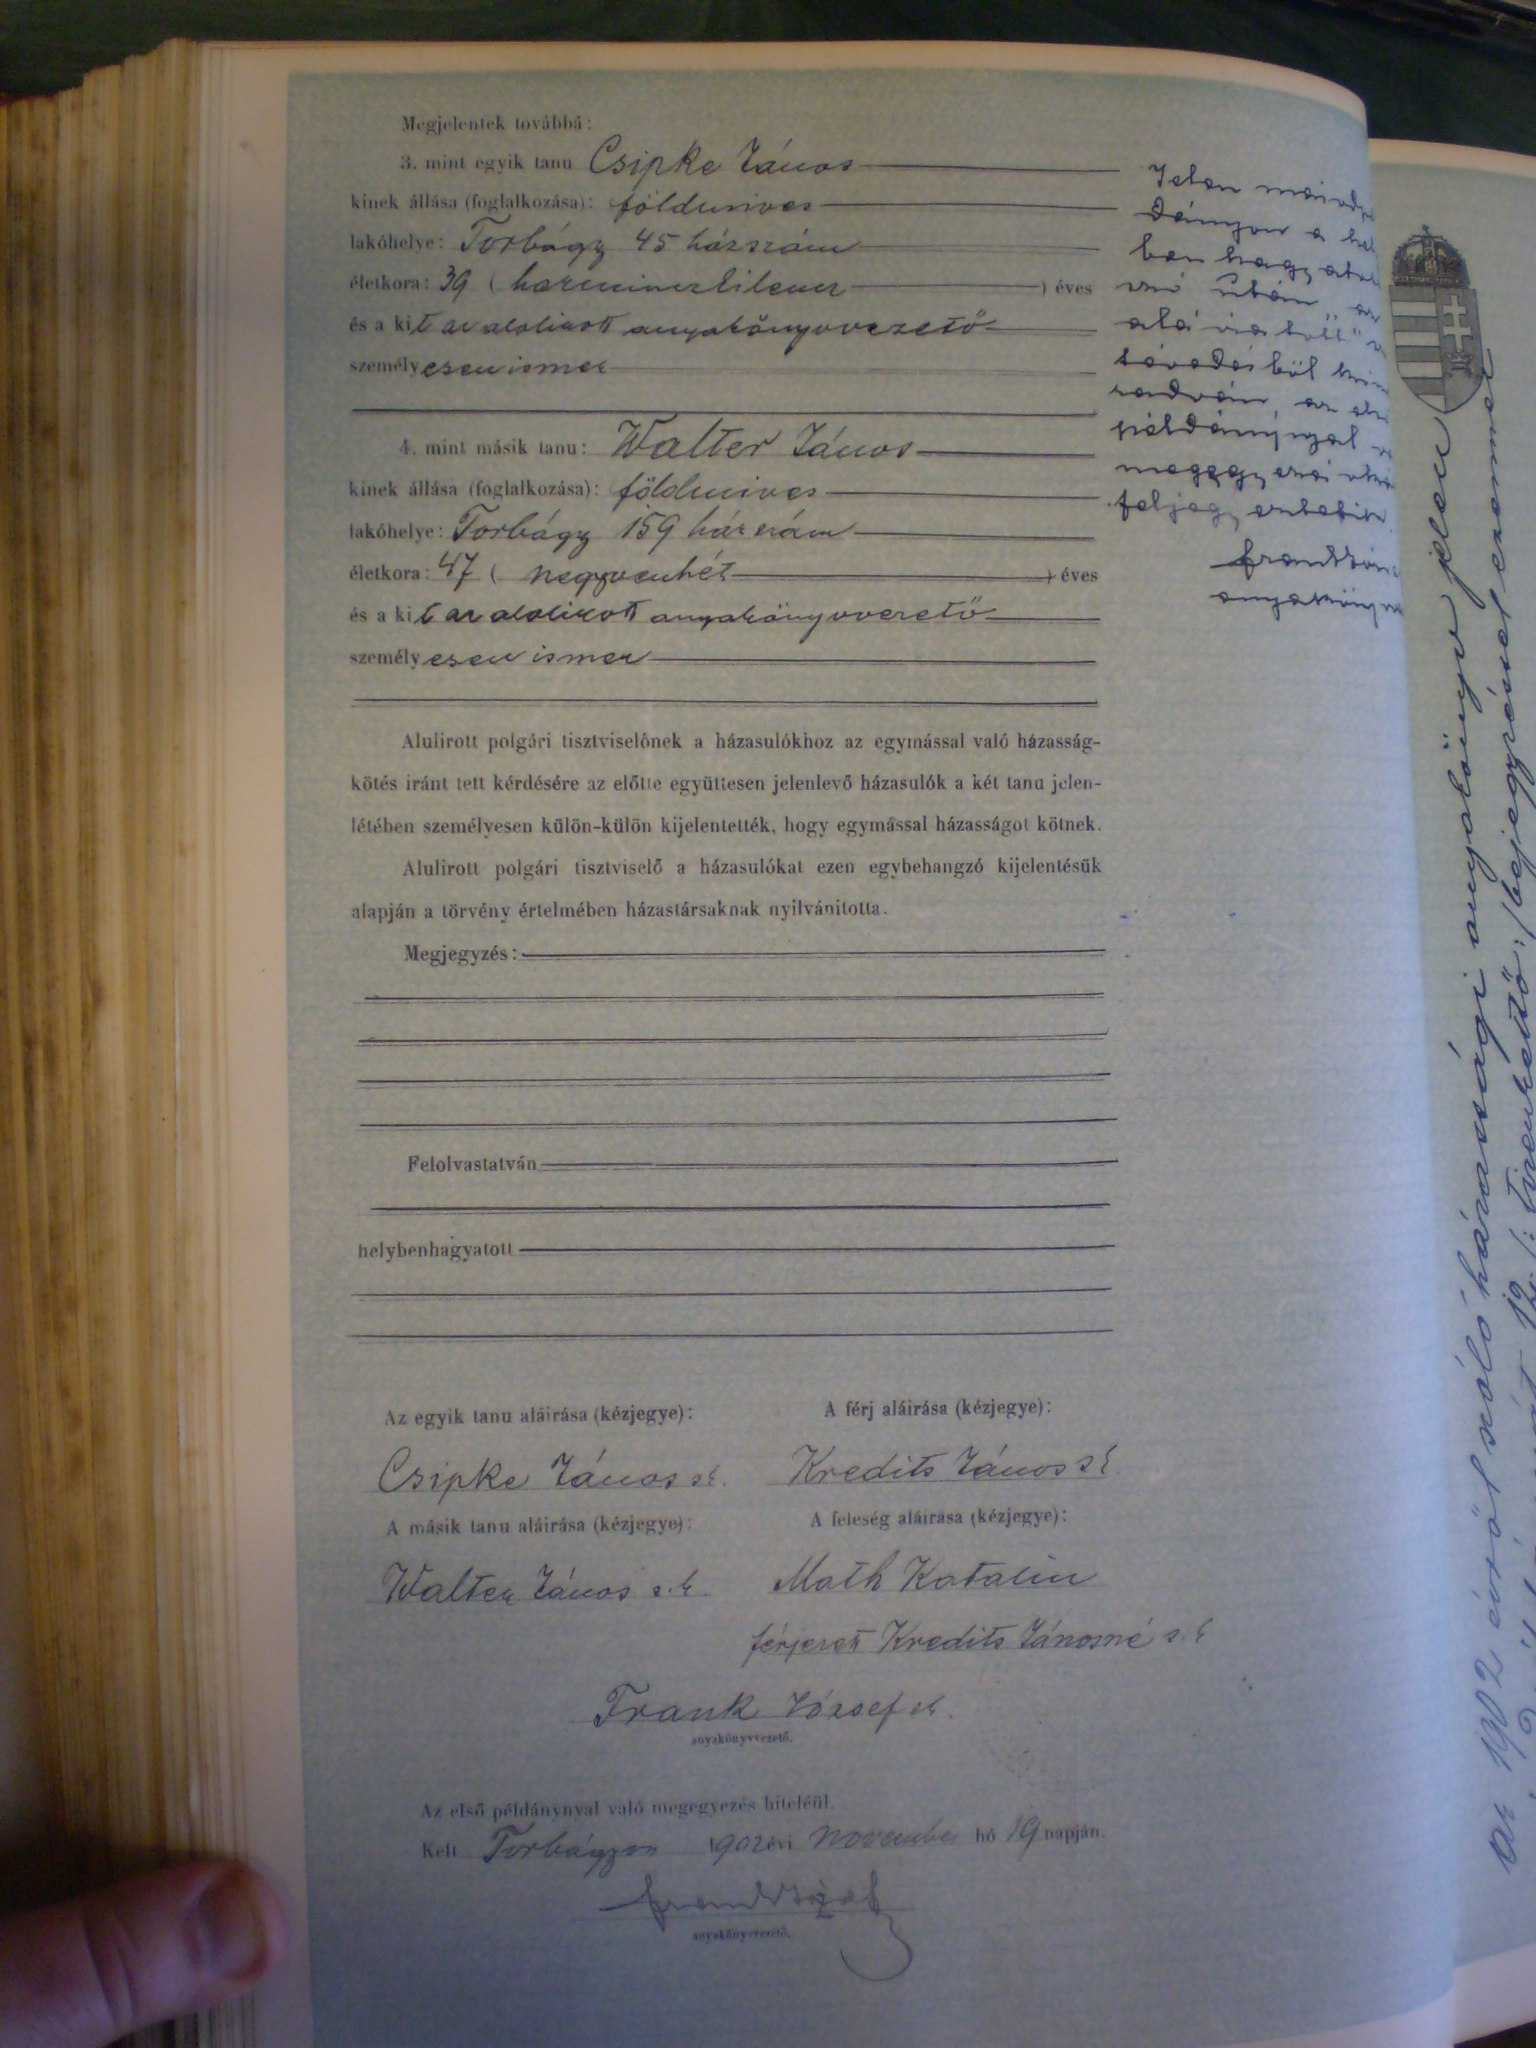 Megjelentek továbbá:
3. mint egyik tanu Csipke János
kinek állása (foglalkozása): földmives
lakóhelye: Torbágy 45 házszám
életkora: 39 ( harminczkilencz ) éves
és a kit az alolirott anyakönyvvezető
személyesen ismer
4. mint másik tanu: Walter János
kinek állása (foglalkozása): földmives
lakóhelye: Torbágy 159 házszám
életkora: 47 ( negyvenhét ) éves
és a kit az alolirott anyakönyvvezető
személyesen ismer
Alulirott polgári tisztviselőnek a házasulókhoz az egymással való házasság-
kötés iránt tett kérdésére az előtte együttesen jelenlevő házasulók a két tanu jelen-
létében személyesen külön-külön kijelentették, hogy egymással házasságot kötnek.
Alulirott polgári tisztviselő a házasulókat ezen egybehangzó kijelentésük
alapján a törvény értelmében házastársaknak nyilvánitotta.
Megjegyzés:
Felolvastatván
helybenhagyatott
Az egyik tanu aláirása (kézjegye):
Csipke János s.k.
A másik tanu aláirása (kézjegye):
Walter János s.k.
A férj aláirása (kézjegye):
Kredits János s.k.
A feleség aláirása (kézjegye):
Math Katalin
férjezett Kredits Jánosné s.k
Frank József s.k.
anyakönyvvezető.
Az első példánynyal való megegyezés hiteléül.
Kelt Torbágyon 1902 évi november hó 19 napján.
anyakönyvvezető.
Jelen
a
után
példánynyal
az 1902 évről szóló házassági anyakönyv jelen